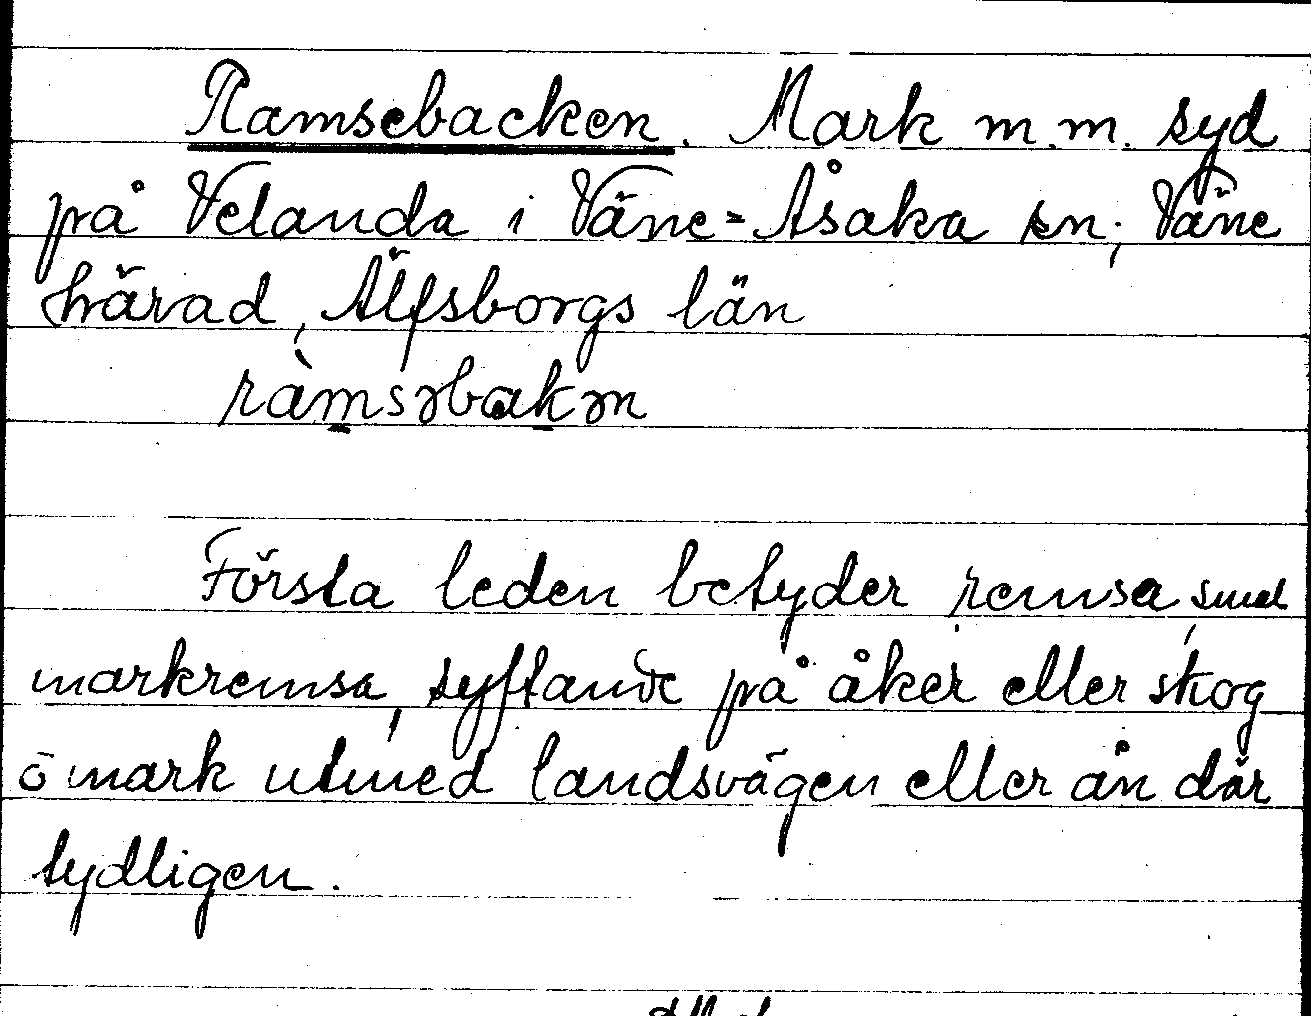 Ramsebacken. Mark m.m. syd
på Velanda i Väne-Åsaka sn; Väne
härad, Älfsborgs län
ràmsəbakən
Första leden betyder remsa, smal
markremsa, syftande på åker eller skog
o mark utmed landsvägen eller ån där
tydligen.